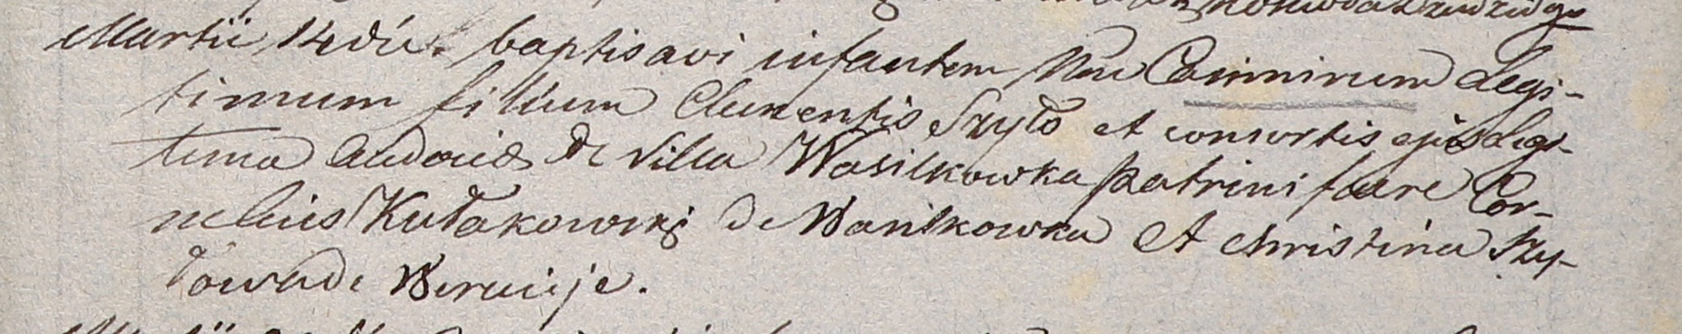 Martii 14 die. baptisavi infantem Nne Casimirum Legi-
timum filium Clementis Szyło et consortis ejus Legi-
tima Eudociæ De Villa Wasilkowka patrini fuere Cor-
nelius Kułakowski De Wasilkowka Et Christina Szy-
łowa de